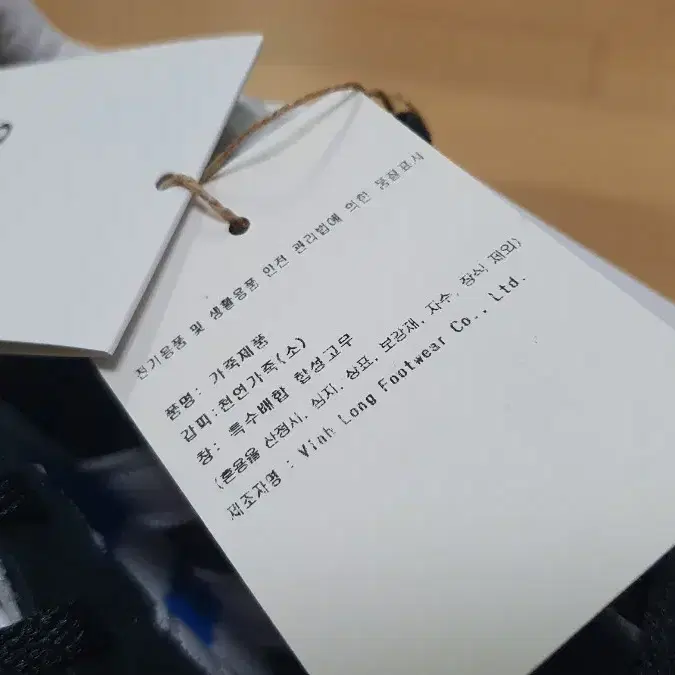 전기용품 및 생활용품 안전 관리법에 의한 품질표시
품명: 가죽제품
갑피:천연가죽(소)
창: 특수배합 합성고무
(혼용율 산정시, 심지, 상표, 보강재, 자수, 장식 제외)
제조자명 : Vinh Long Footwear Co., Ltd.